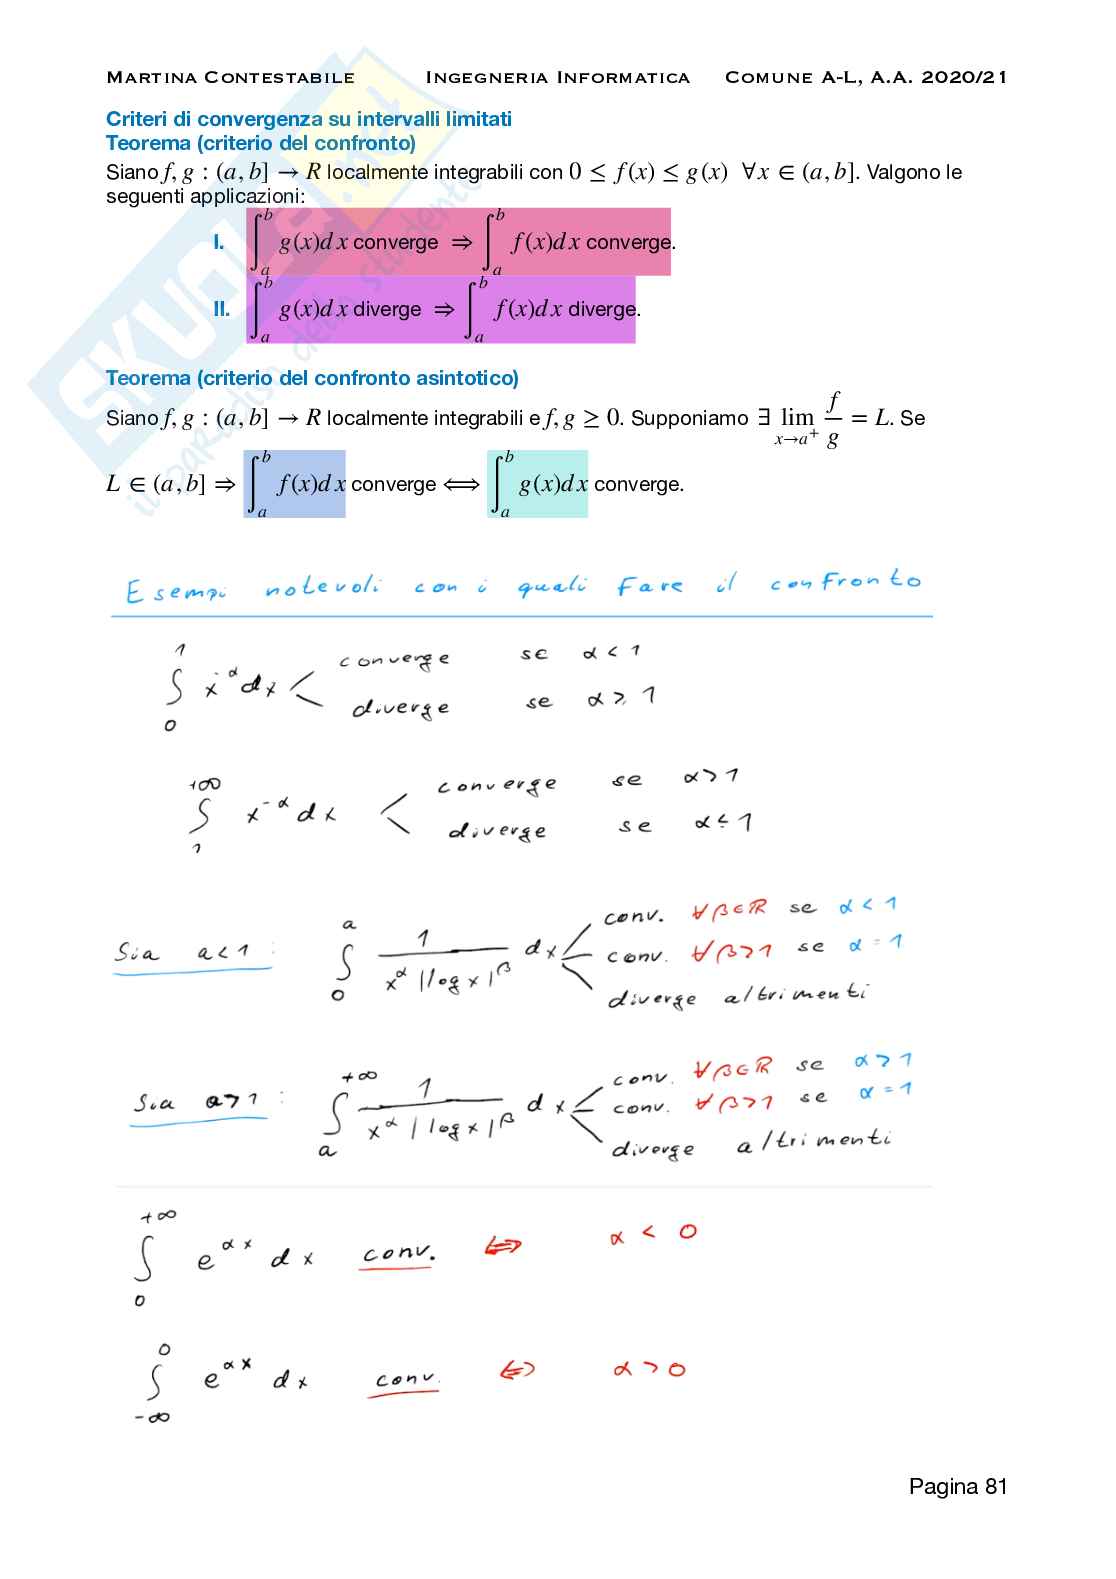 MARTINA CONTESTABILE INGEGNERIA INFORMATICA COMUNE A-L, A.A. 2020/21
Criteri di convergenza su intervalli limitati
Teorema (criterio del confronto)
Siano f, g : (a, b] → R localmente integrabili con 0 ≤ f(x) ≤ g(x) ∀x ∈ (a, b]. Valgono le
seguenti applicazioni:
I. ∫_a^b g(x)dx converge ⇒ ∫_a^b f(x)dx converge.
II. ∫_a^b g(x)dx diverge ⇒ ∫_a^b f(x)dx diverge.
Teorema (criterio del confronto asintotico)
Siano f, g : (a, b] → R localmente integrabili e f, g ≥ 0. Supponiamo ∃ lim_{x→a⁺} f/g = L. Se
L ∈ (a, b] ⇒ ∫_a^b f(x)dx converge ⟺ ∫_a^b g(x)dx converge.
Esempi notevoli con i quali fare il confronto
∫_0^1 x^-α dx < converge se α < 1
diverge se α ≥ 1
∫_1^+∞ x^-α dx < converge se α > 1
diverge se α ≤ 1
Sia a < 1 : ∫_0^a 1/(x^α |log x|^β) dx conv. ∀β∈ℝ se α < 1
conv. ∀β>1 se α = 1
diverge altrimenti
Sia a > 1 : ∫_a^+∞ 1/(x^α |log x|^β) dx conv. ∀β∈ℝ se α > 1
conv. ∀β>1 se α = 1
diverge altrimenti
∫_0^+∞ e^αx dx conv. ⇔ α < 0
∫_-∞^0 e^αx dx conv. ⇔ α > 0
Pagina 81
SKUOLA.net
il paradiso dello studente